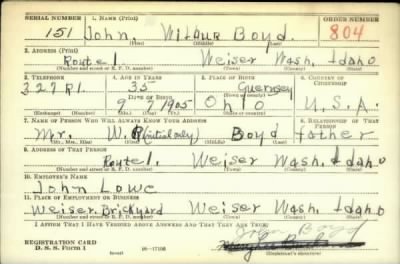 SERIAL NUMBER 1. NAME (Print) ORDER NUMBER
151 John, Wilbur Boyd. 804
(First) (Middle) (Last)
2. ADDRESS (Print)
Route 1. Weiser Wash. Idaho
(Number and street or R. F. D. number) (Town) (County) (State)
3. TELEPHONE 4. AGE IN YEARS 5. PLACE OF BIRTH 6. COUNTRY OF CITIZENSHIP
327R1. 35 Guernsey
DATE OF BIRTH
9 7 1905 Ohio U.S.A.
(Mo.) (Day) (Yr.) (State or country)
7. NAME OF PERSON WHO WILL ALWAYS KNOW YOUR ADDRESS 8. RELATIONSHIP OF THAT PERSON
Mr. W. R (initial only) Boyd father
(Mr., Mrs., Miss) (First) (Middle) (Last)
9. ADDRESS OF THAT PERSON
Route 1. Weiser Wash. Idaho
(Number and street or R. F. D. number) (Town) (County) (State)
10. EMPLOYER'S NAME
John Lowe
11. PLACE OF EMPLOYMENT OR BUSINESS
Weiser. Brickyard Weiser Wash. Idaho
(Number and street or R. F. D. number) (Town) (County) (State)
I AFFIRM THAT I HAVE VERIFIED ABOVE ANSWERS AND THAT THEY ARE TRUE.
John Boyd
REGISTRATION CARD
D. S. S. Form 1 16—17105 (Registrant's signature)